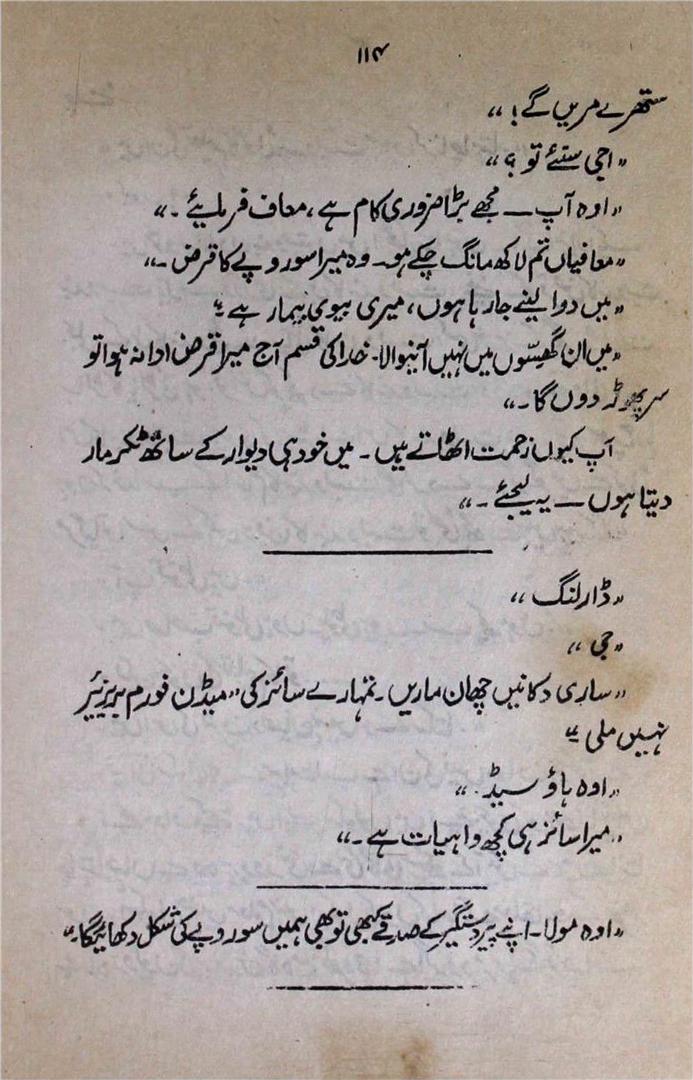 ۱۱۴
ستھرے مریں گے! ،،
،، اجی سنئے تو ؟ ،،
،، اوہ آپ ـــ مجھے بڑا ضروری کام ہے، معاف فرمایئے۔ ،،
،، معافیاں تم لاکھ مانگ چکے ہو۔ وہ میرا سو روپے کا قرض ۔،،
،، میں دوا لینے جا رہا ہوں، میری بیوی بیمار ہے ،،
،، میں ان گھسّوں میں نہیں آنیوالا۔ خدا کی قسم آج میرا قرض ادا نہ ہوا تو
سر پھوڑ دوں گا۔،،
آپ کیوں زحمت اٹھاتے ہیں ۔ میں خود ہی دیوار کے ساتھ ٹکر مار
دیتا ہوں ـــ یہ لیجئے ۔،،
،، ڈارلنگ ،،
،، جی ،،
،، ساری دکانیں چھان ماریں۔ تمہارے سائز کی ،، میڈن فورم بریزیئر
نہیں ملی ،،
،، اوہ ہاؤ سیڈ ۔ ،،
،، میرا سائز ہی کچھ واہیات ہے ۔،،
،، اوہ مولا۔ اپنے پیر دستگیر کے صدقے کبھی تو بھی ہمیں سو روپے کی شکل دکھائیگا۔،،